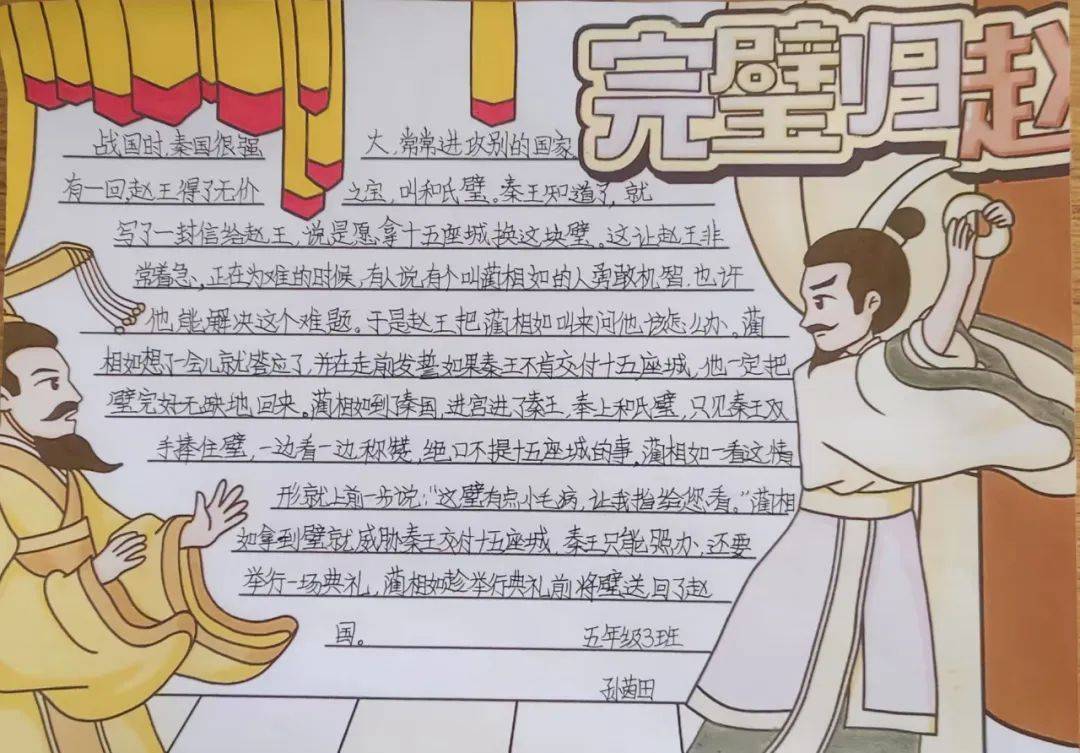 完璧归赵
战国时,秦国很强大,常常进攻别的国家
有一回,赵王得了无价之宝,叫和氏璧。秦王知道了,就
写了一封信给赵王,说是愿拿十五座城换这块璧。这让赵王非
常着急,正在为难的时候,有人说有个叫蔺相如的人勇敢机智.也许
他能解决这个难题。于是赵王把蔺相如叫来问他该怎么办。蔺
相如想了一会儿就答应了,并在走前发誓如果秦王不肯交付十五座城,他一定把
璧完好无缺地回来。蔺相如到了秦国,进宫进了秦王,奉上和氏璧,只见秦王双
手捧住璧,一边看一边称赞,绝口不提十五座城的事,蔺相如一看这情
形就上前一步说:"这璧有点小毛病,让我指给您看。"蔺相
如拿到璧就威胁秦王交付十五座城,秦王只能照办,还要
举行一场典礼,蔺相如趁举行典礼前将璧送回了赵
国。 五年级3班
孙茵田